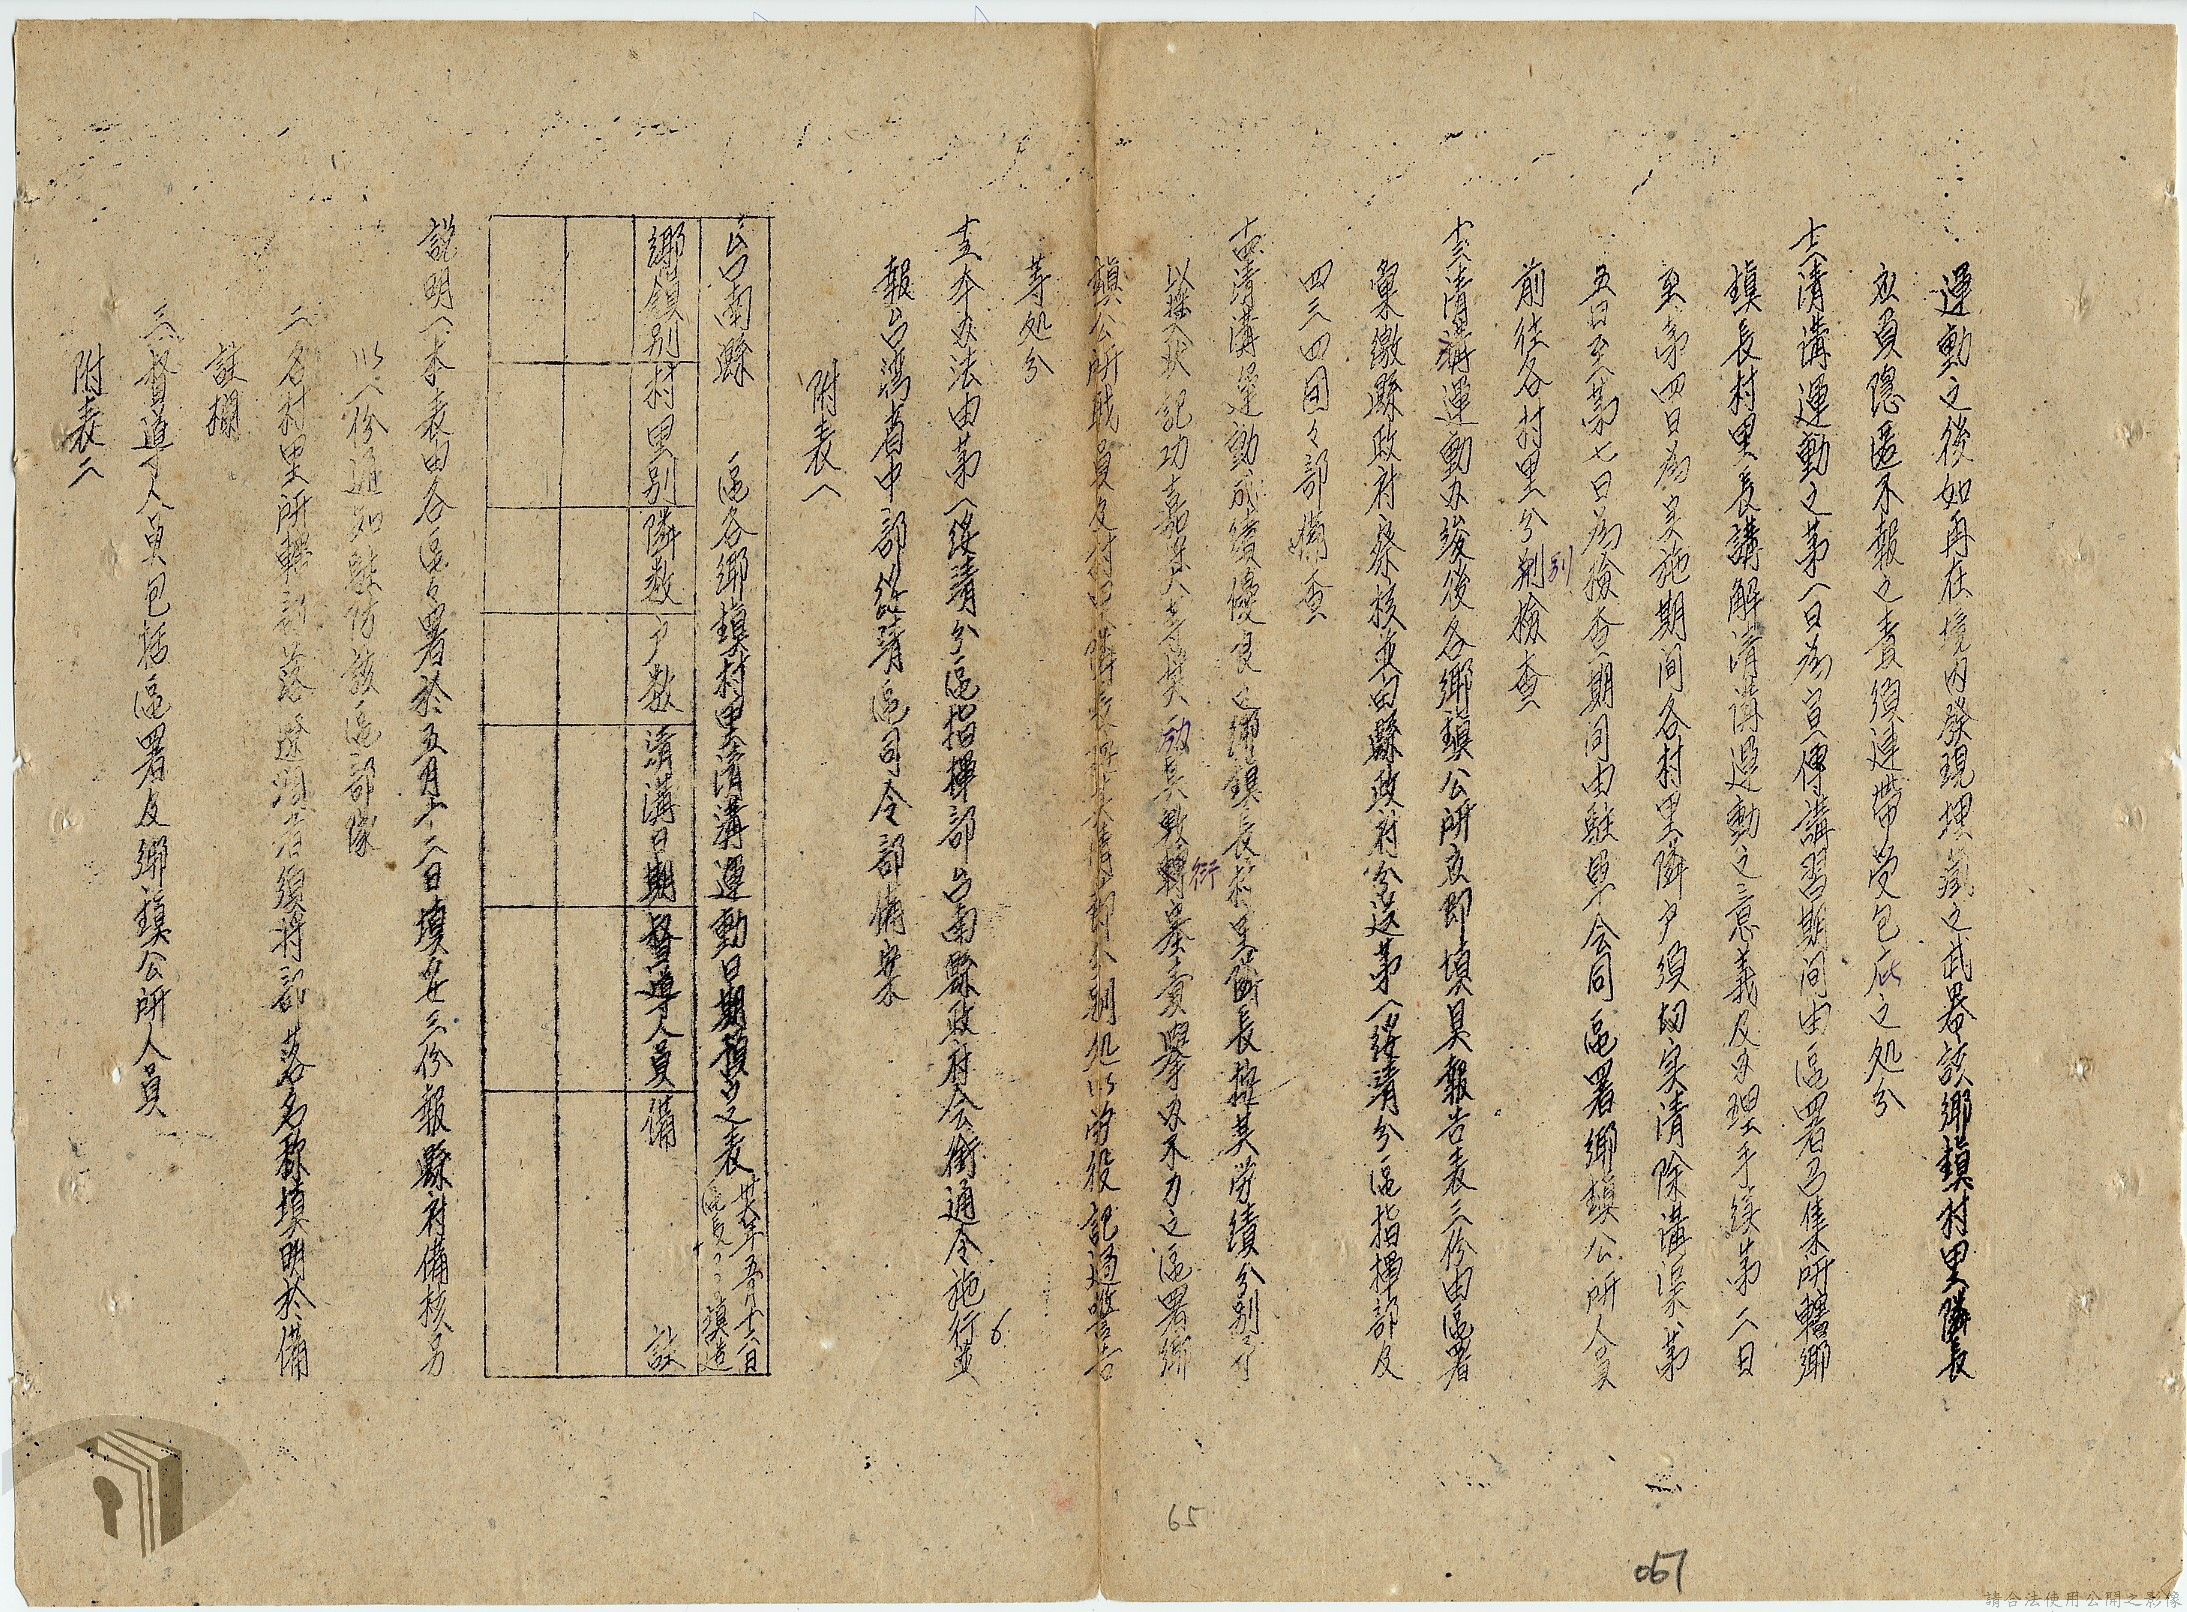 運動之後如再在境内發現埋藏之武器該鄉鎮村里隣長
应負隱匿不報之責須連帶受包庇之処分
十二清溝運動之第一日為宣傳講習期间由區署召集所轄鄉
鎮長村里長講解清溝運動之意義及办理手续第二日
至第四日為实施期间各村里隣户須切实清除溝渠第
五日至第七日為檢查期间由駐军会同區署鄉鎮公所人員
前往各村里分別檢查
十三清溝運動办竣後各鄉鎮公所应即填具報告表三份由區署
彙繳縣政府察核並由縣政府分送第一綏清分區指揮部及
四三四團々部備查
十四清溝運動成績優良之鄉鎮長村里隣長按其劳績分别予
以 記功嘉獎 等獎励其敷衍塞責舉办不力之區署鄉
鎮公所职員及村里隣長 其情节分别処以劳役記过警告
等処分
十五本办法由第一綏清分區指揮部台南縣政府会銜通令施行並
報台湾省中部綏清區司令部備案
6
附表一
台南縣 區各鄉鎮村里清溝運動日期預定表
卅六年五月十二日
區長 填造
鄉鎮别 村里别 隣数 户数 清溝日期 督導人員 備註
説明一本表由各區々署於五月十二日填妥三份報縣府備核另
以一份通知駐防該區部隊
二各村里所轄部落 者須将部落名称填明於備
註欄
三督導人員包括區署及鄉鎮公所人員
附表二
65
067
請合法使用公開之影像